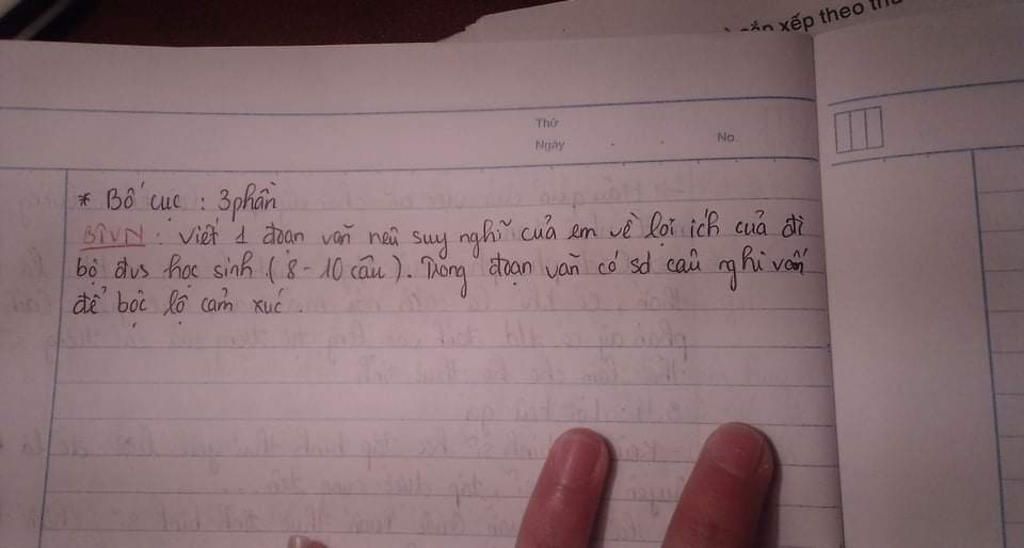 sắp xếp theo
Thứ
Ngày
No.
* Bố cục : 3 phần
BTVN : Viết 1 đoạn văn nêu suy nghĩ của em về lợi ích của đi
bộ đvs học sinh ( 8 - 10 câu ). Trong đoạn văn có sd câu nghi vấn
để bộc lộ cảm xúc.